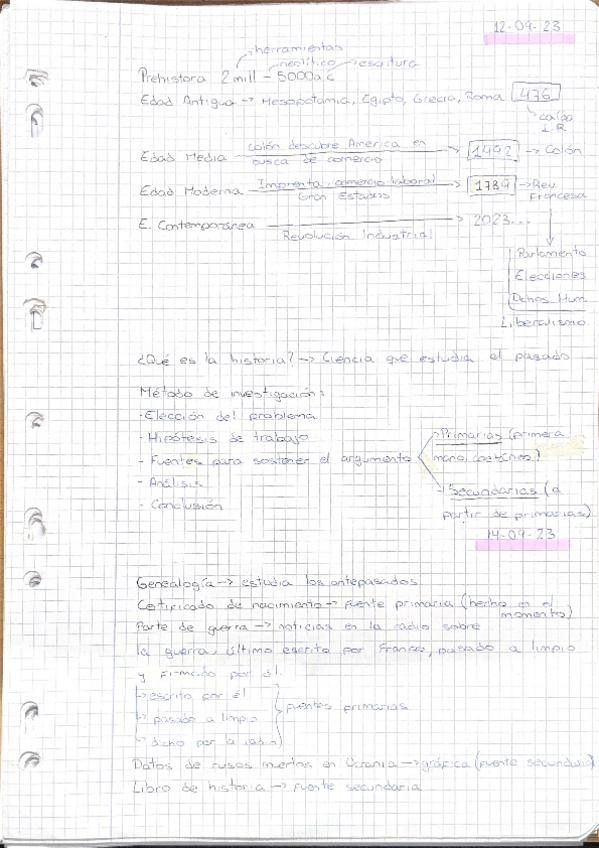 12-09-23
herramientas
neolítico escritura
Prehistora 2mill - 5000a.C
Edad Antigua → Mesopotamia, Egipto, Grecia, Roma 476
caída
I.R
Colón descubre América en
Edad Media → 1492 → Colón
busca de comercio
Imprenta, comercio laboral
Edad Moderna → 1789 → Rev
Gran Estados Francesa
E. Contemporánea → 2023...
Revolución Industrial
Parlamento
Elecciones
Dchos Hum.
Liberalismo
¿Qué es la historia? → Ciencia que estudia el pasado
Método de investigación:
- Elección del problema
- Hipótesis de trabajo
- Fuentes para sostener el argumento
→ Primarias (primera
mano,
- Análisis
- Conclusión
→ Secundarias (a
partir de primarias)
14-09-23
Genealogía → estudia los antepasados
Certificado de nacimiento → fuente primaria (hecho en el
momento)
Parte de guerra → noticias en la radio sobre
la guerra, último escrito por Franco, pasado a limpio
y firmado por él.
→ escrito por él
→ pasado a limpio
→ dicho por la radio
fuentes primarias
Datos de rusos muertos en Ucrania → gráfica (fuente secundaria)
Libro de historia → fuente secundaria